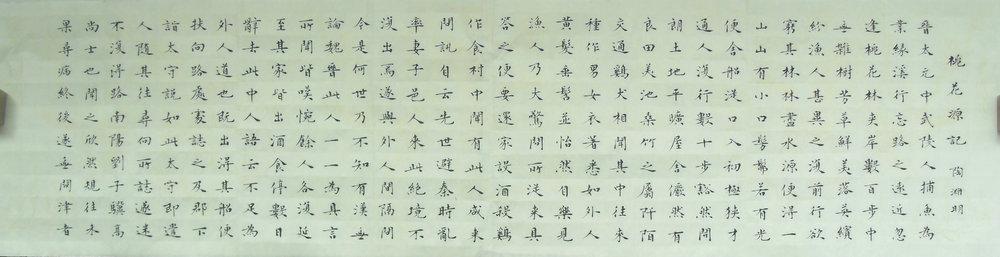 桃花源記 陶淵明
晉太元中武陵人捕魚為
業緣溪行忘路之遠近忽
逢桃花林夾岸數百步中
無雜樹芳草鮮美落英繽
紛漁人甚異之復前行欲
窮其林林盡水源便得一
山山有小口髣髴若有光
便舍船從口入初極狹才
通人復行數十步豁然開
朗土地平曠屋舍儼然有
良田美池桑竹之屬阡陌
交通鷄犬相聞其中往來
種作男女衣著悉如外人
黃髮垂髫並怡然自樂見
漁人乃大驚問所從來具
答之便要還家設酒殺鷄
作食村中聞有此人咸來
問訊自云先世避秦時亂
率妻子邑人來此絕境不
復出焉遂與外人間隔問
今是何世乃不知有漢無
論魏晉此人一一為具言
所聞皆嘆惋餘人各復延
至其家皆出酒食停數日
辭去此中人語云不足為
外人道也既出得其船便
扶向路處處誌之及郡下
詣太守說如此太守即遣
人隨其往尋向所誌遂迷
不復得路南陽劉子驥高
尚士也聞之欣然規往未
果尋病終後遂無問津者